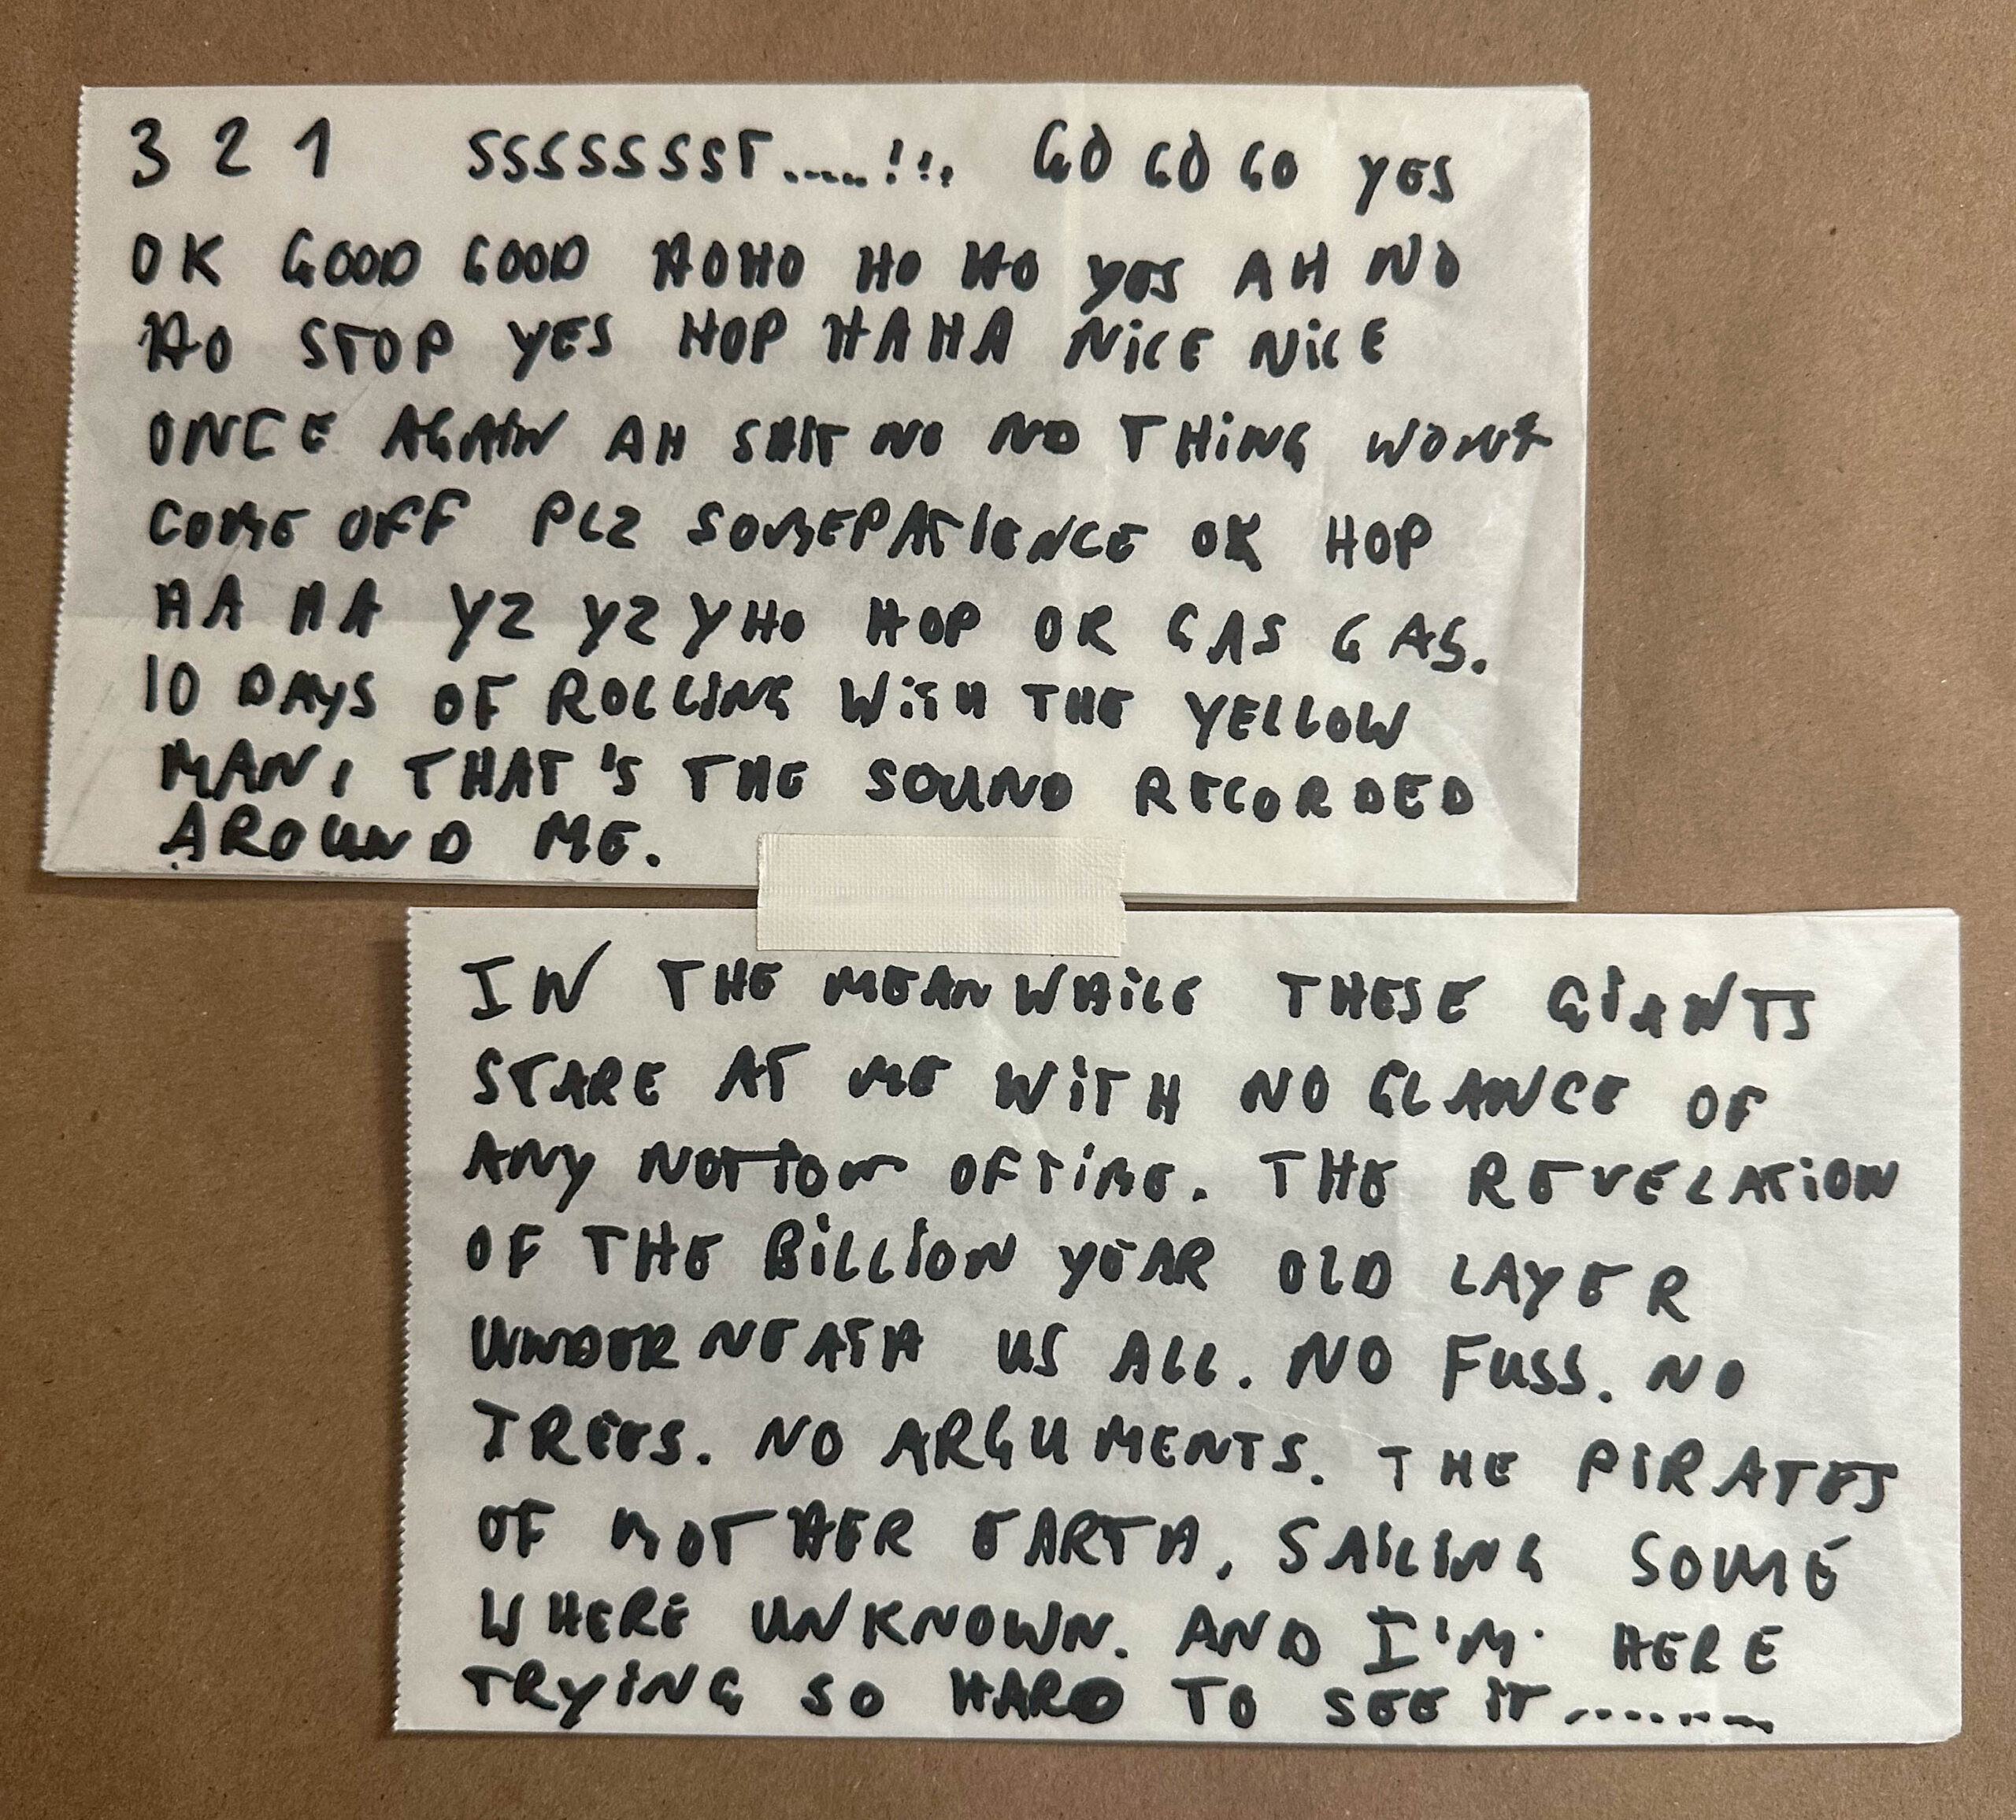 3 2 1 SSSSSSSST.....!!. GO GO GO YES
OK GOOD GOOD HOHO HO HO YES AH NO
HO STOP YES HOP HAHA NiCE NiCE
ONCE AGAiN AH SHIT NO NO THiNG WONT
COME OFF PLZ SOMEPATIENCE OK HOP
HA HA YZ YZ YHO HOP OR GAS GAS.
10 DAYS OF ROLLiNG WiTH THE YELLOW
MAN, THAT'S THE SOUND RECORDED
AROUND ME.
IN THE MEANWHiLE THESE GiANTS
STARE AT ME WiTH NO GLANCE OF
ANY NOTTION OF TiME. THE REVELATiON
OF THE BiLLiON YEAR OLD LAYER
UNDERNEATH US ALL. NO FUSS. NO
TREES. NO ARGUMENTS. THE PiRATES
OF MOTHER EARTH, SAiLiNG SOME
WHERE UNKNOWN. AND I'M HERE
TRYiNG SO HARD TO SEE iT........